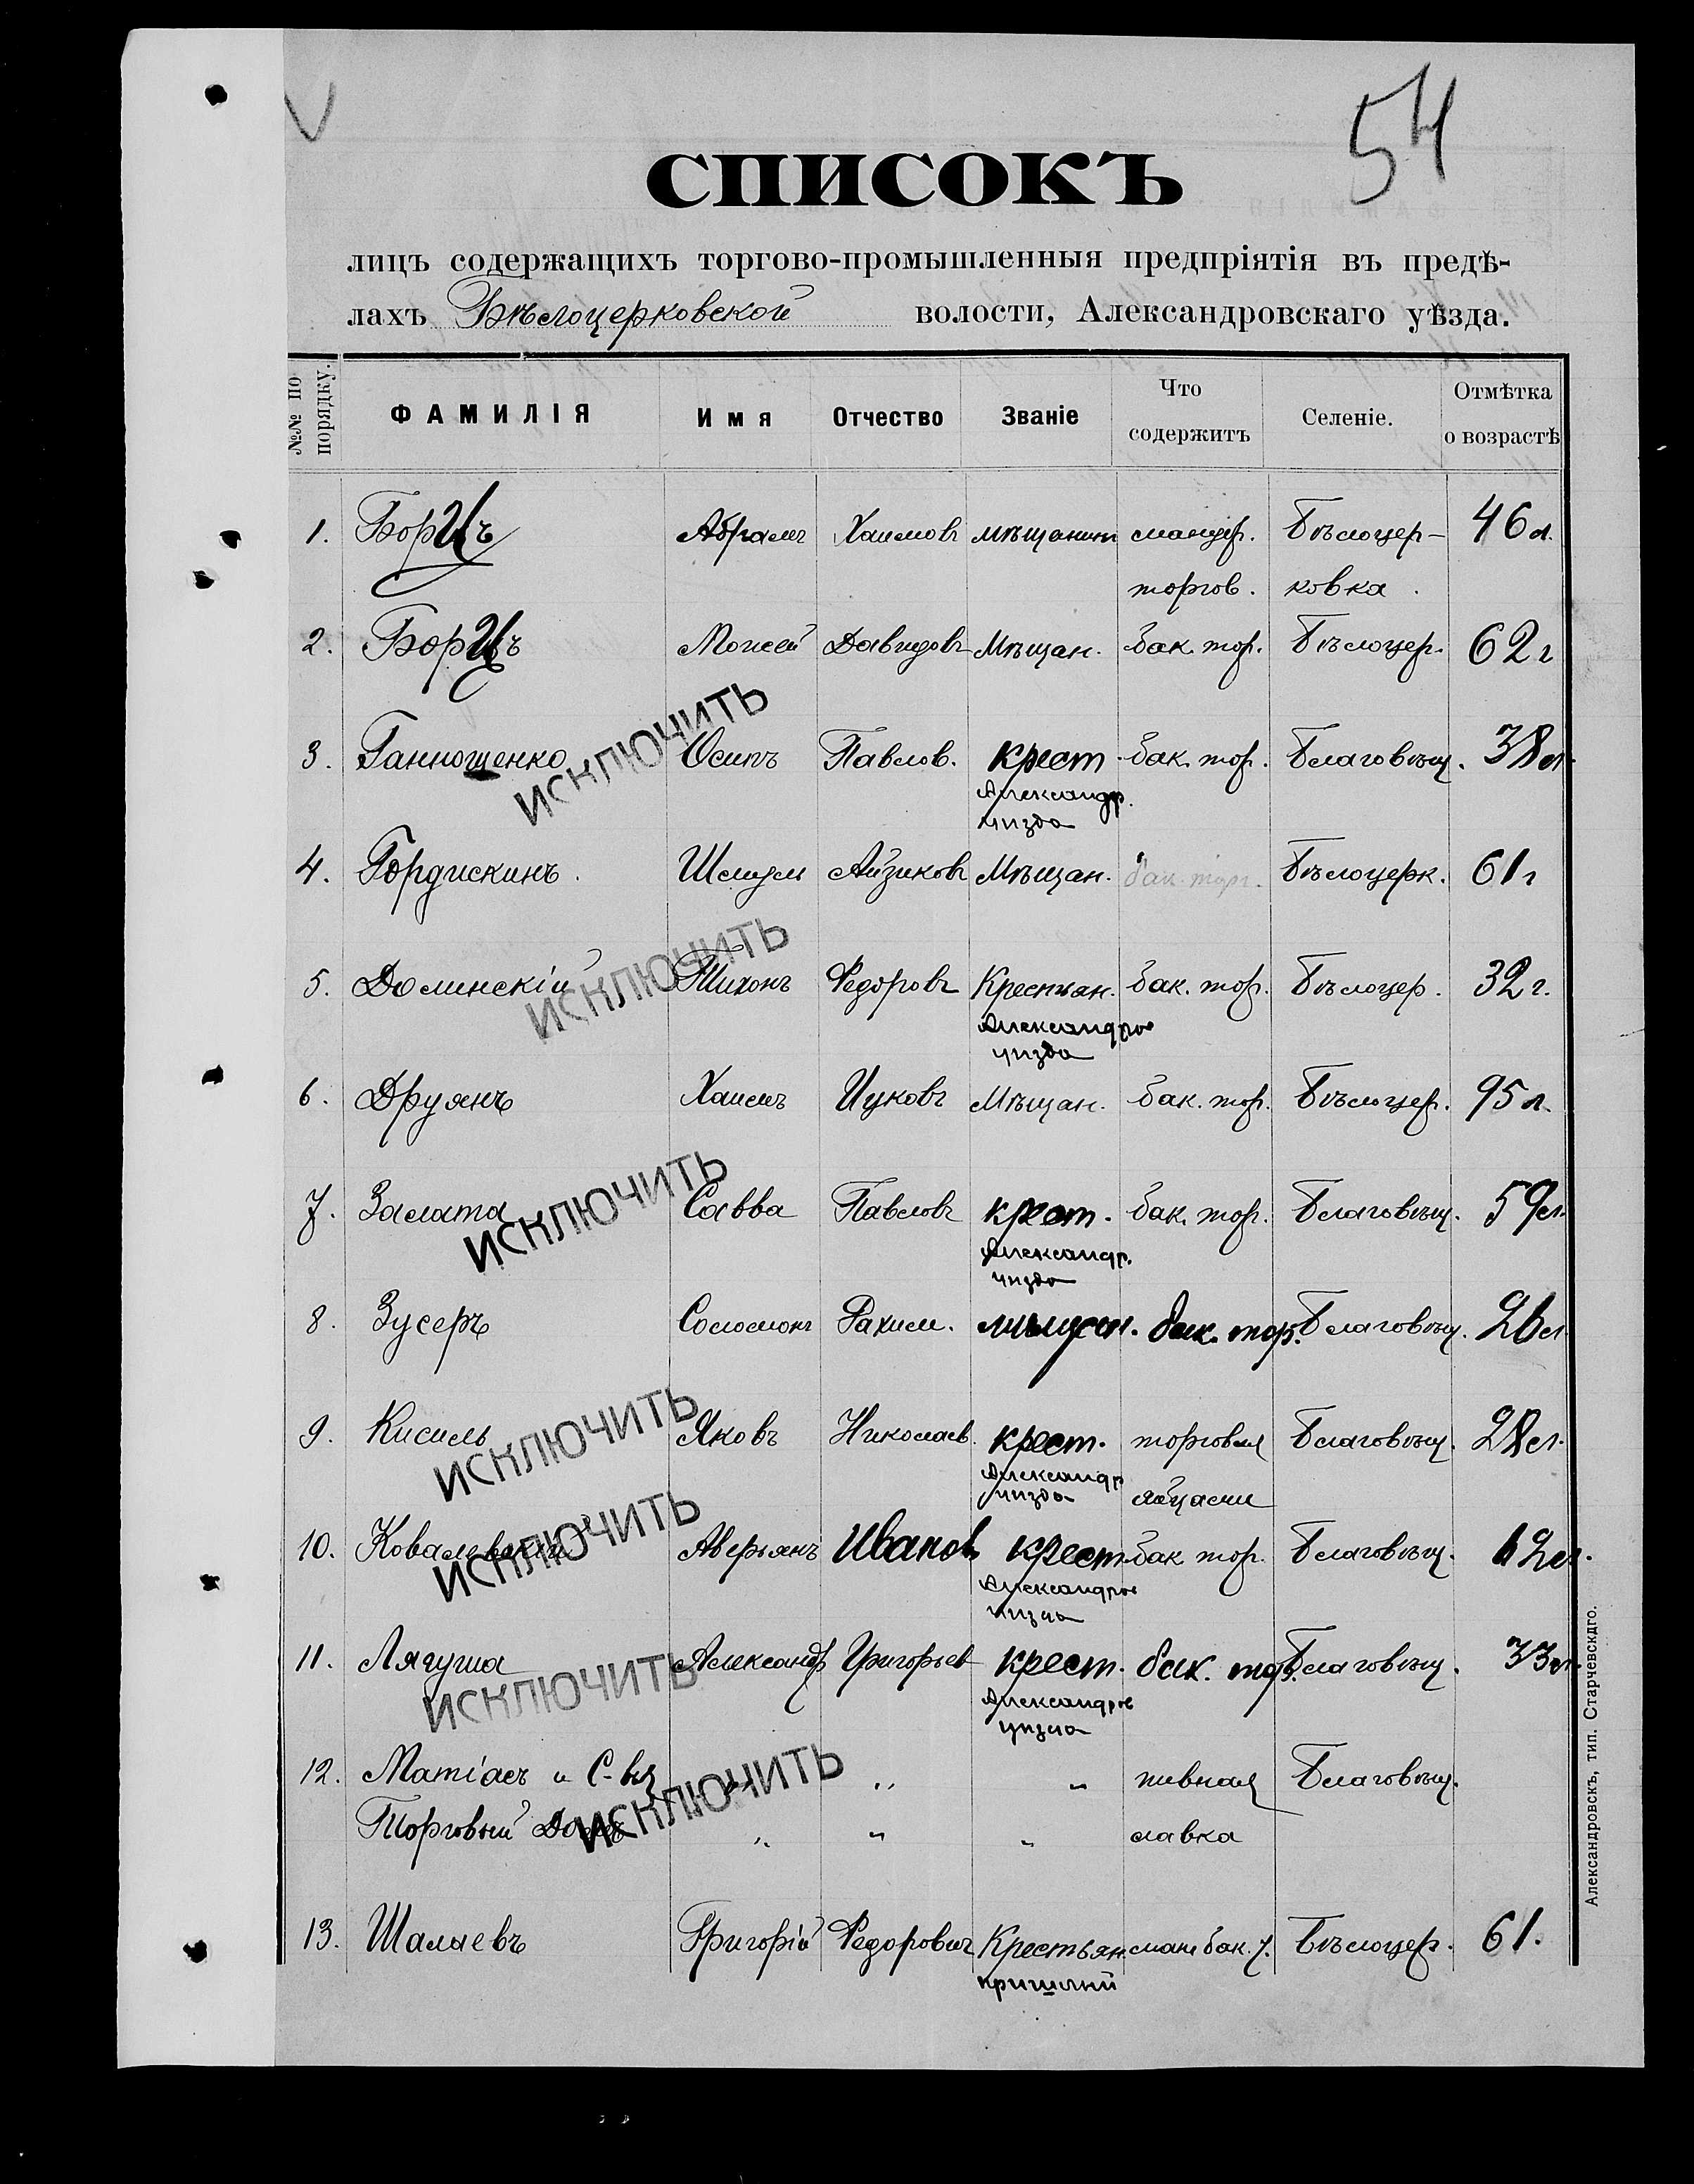 54
СПИСОКЪ
лицъ содержащихъ торгово-промышленныя предпріятія въ предѣ-
лахъ Бѣлоцерковской волости, Александровскаго уѣзда.
№№ по порядку. ФАМИЛІЯ Имя Отчество Званіе Что содержитъ Селеніе. Отмѣтка о возрастѣ
1. Борцъ Абрамъ Хаимовъ мѣщанинъ мануф. Бѣлоцер- 46 л.
торгов. ковка.
2. Борцъ Моисей Давидовъ Мѣщан. бак. тор. Бѣлоцер. 62 г
3. Ганнощенко Осипъ Павлов. крест. бак. тор. Благовѣщ. 38 л.
ИСКЛЮЧИТЬ
Александр.
уѣзда
4. Гордискинъ. Шмуль Айзиковъ Мѣщан. бак. торг. Бѣлоцерк. 61 г
5. Долинскій Тихонъ Федоровъ Крестьян. бак. тор. Бѣлоцер. 32 г.
ИСКЛЮЧИТЬ
Александров
уѣзда
6. Друянъ Хаимъ Ицковъ Мѣщан. бак. тор. Бѣлоцер. 95 л.
7. Залата Савва Павловъ крест. бак. тор. Благовѣщ. 59 л.
ИСКЛЮЧИТЬ
Александр.
уѣзда
8. Зусеръ Соломонъ Рахим. мѣщан. бак. тор. Благовѣщ. 26 л.
9. Кисиль Яковъ Николаев. крест. торговля Благовѣщ. 28 л.
ИСКЛЮЧИТЬ
Александр
уѣзда яйцами
10. Ковалевскій Аверьянъ Иванов крест. бак. тор. Благовѣщ. 62 л.
ИСКЛЮЧИТЬ
Александров
уѣзда
11. Лягуша Александр Григорьев крест. бак. тор. Благовѣщ. 33 л.
ИСКЛЮЧИТЬ
Александров
уѣзда
12. Матіасъ и С-вья " " " пивная Благовѣщ.
Торговый Домъ " " " лавка
ИСКЛЮЧИТЬ
13. Шалаевъ Григорій Федоровичъ Крестьян. ман. бак. т. Бѣлоцер. 61.
Александровскъ, тип. Старчевскдго.